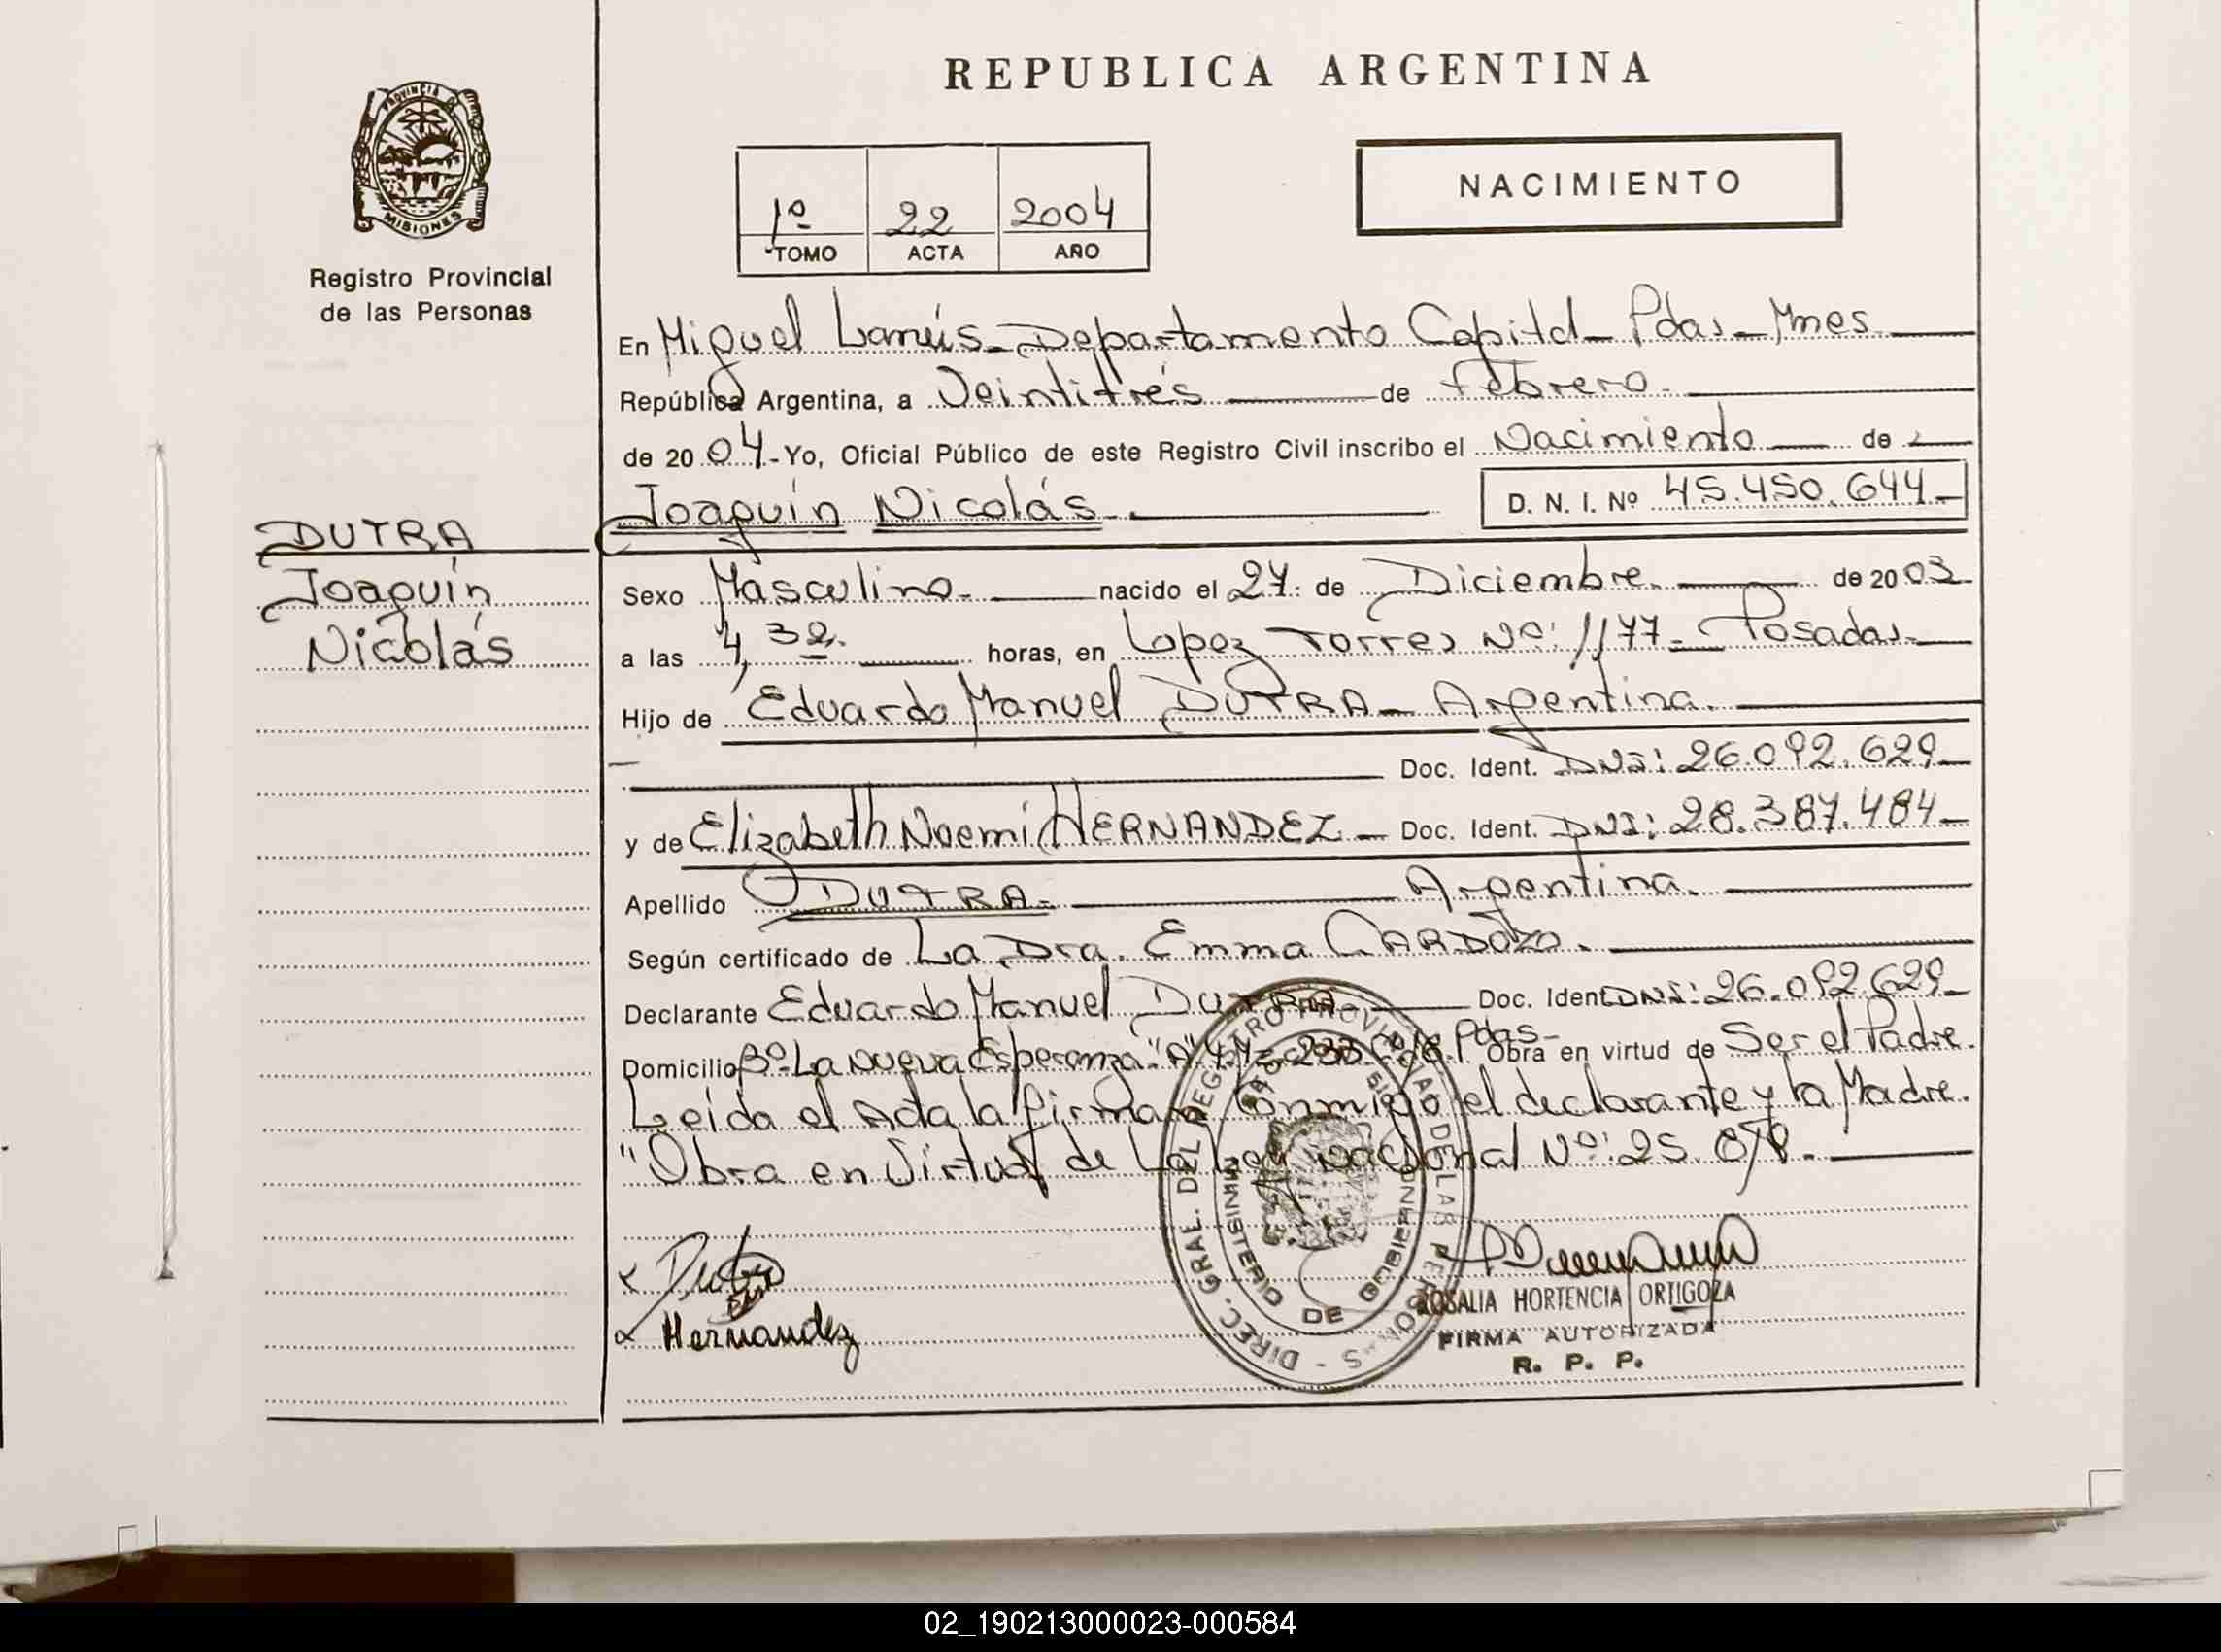 REPUBLICA ARGENTINA
PROVINCIA DE MISIONES
Registro Provincial
de las Personas
1º 22 2004
TOMO ACTA AÑO
NACIMIENTO
En Miguel Lanús - Departamento Capital - Pdas - Mnes
República Argentina, a Veintitrés de Febrero.
de 2004.- Yo, Oficial Público de este Registro Civil inscribo el Nacimiento de
Joaquín Nicolás. D. N. I. Nº 45.450.644
DUTRA
Joaquín
Nicolás
Sexo Masculino. nacido el 27. de Diciembre. de 2003
a las 4, 32. horas, en Lopez Torres Nº: 1177 - Posadas.
Hijo de Eduardo Manuel DUTRA - Argentina.
Doc. Ident. DNI: 26.092.629
y de Elizabeth Noemí HERNANDEZ - Doc. Ident. DNI: 28.387.484
Apellido DUTRA - Argentina.
Según certificado de La Dra. Emma CARDOZO.
Declarante Eduardo Manuel DUTRA Doc. Ident. DNI: 26.092.629
Domicilio Bº La Nueva Esperanza "A" Pdas - Obra en virtud de Ser el Padre.
Leída el Acta la firman Conmigo el declarante y la Madre.
"Obra en Virtud de La Ley Nacional Nº: 25.
DIREC. GRAL. DEL REGISTRO PROVINCIAL DE LAS PERSONAS
MINISTERIO DE GOBIERNO
Dutra
Hernandez
ROSALIA HORTENCIA ORTIGOZA
FIRMA AUTORIZADA
R. P. P.
02_190213000023-000584